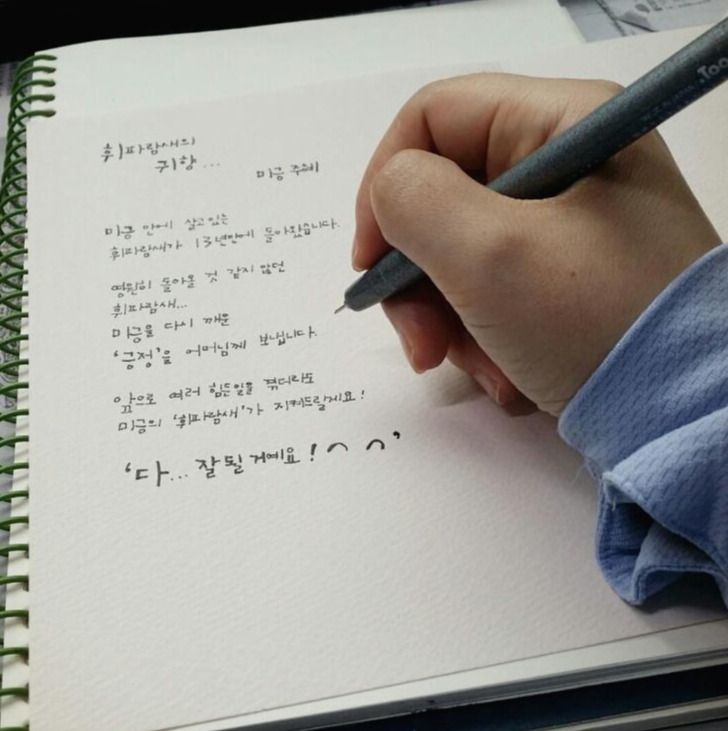 휘파람새의
귀향...
미금 주혜
미금 안에 살고있는
휘파람새가 13년만에 돌아왔습니다.
영원히 돌아올 것 같지 않던
휘파람새...
미금을 다시 깨운
'긍정'을 어머님께 보냅니다.
앞으로 여러 힘든일들
미금의 '휘파람새'가 지켜드릴게요!
'다... 잘 될 거예요! ^ ^'